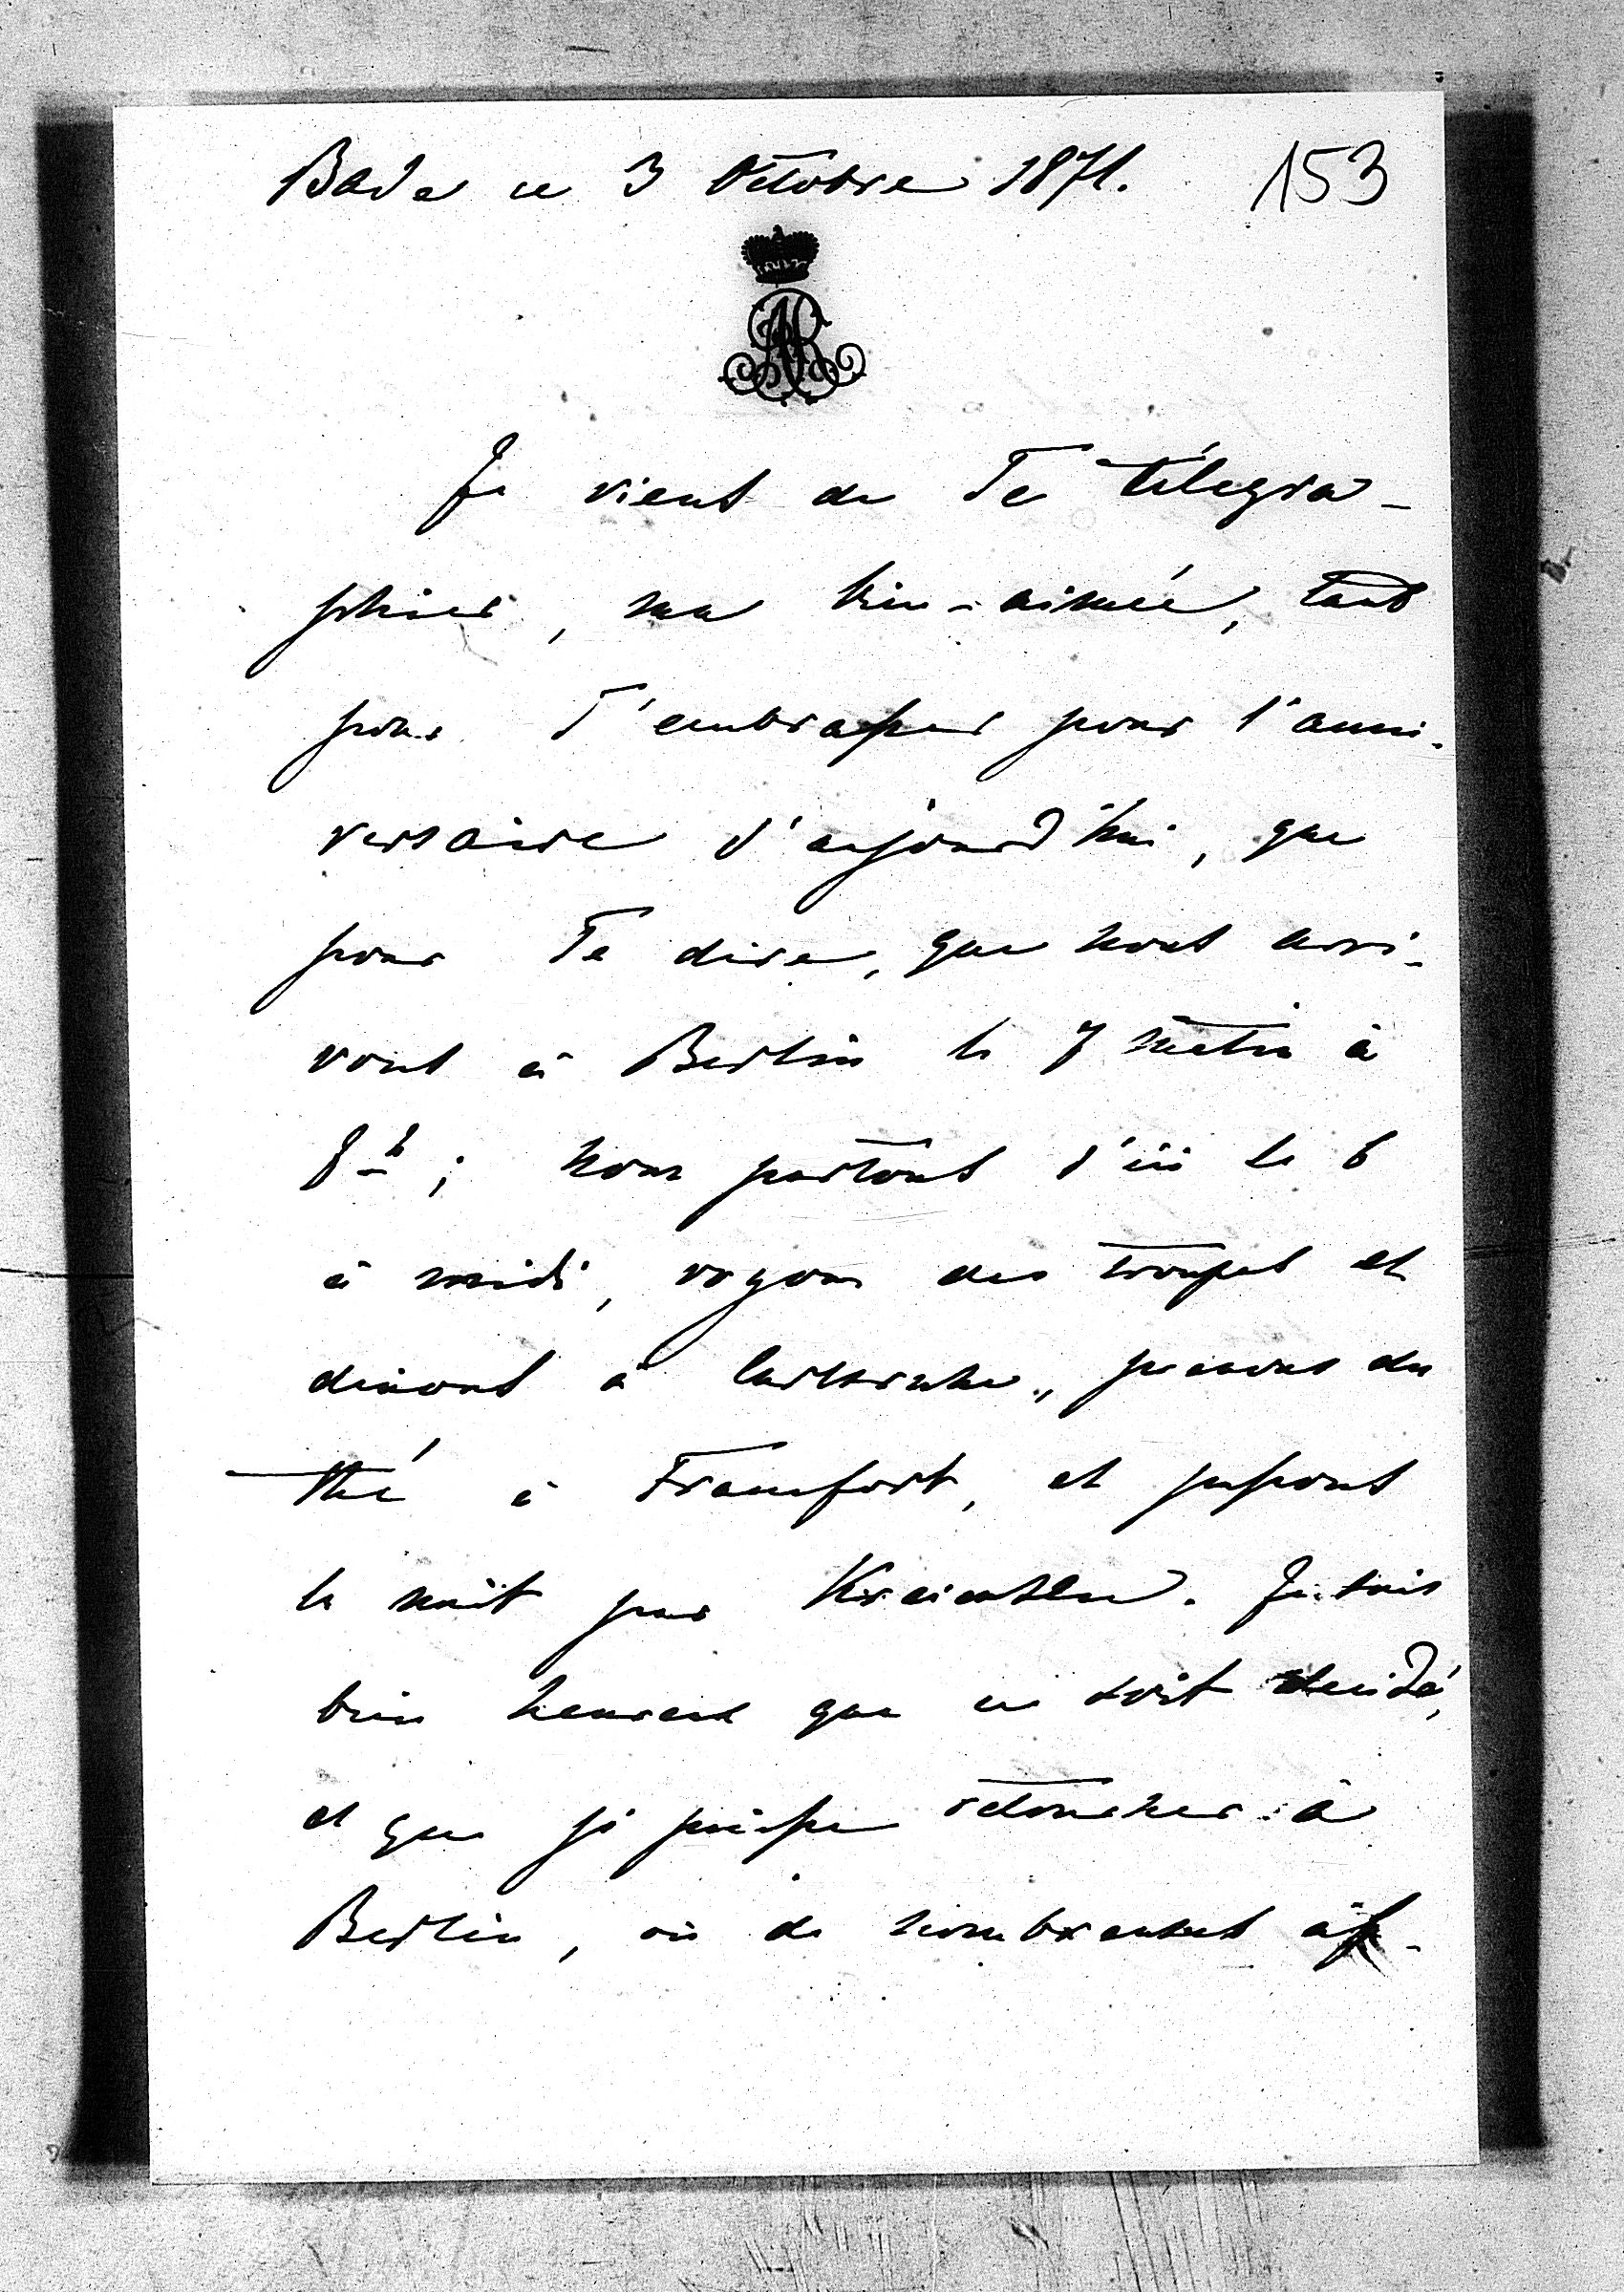 Bade ce 3 Octobre 1871. 153
AR
Je viens de Te télegra-
phier, ma bien-aimée, tant
pour T'embrasser pour l'anni-
versaire d'aujourd'hui, que
pour Te dire, que nous arri-
vons à Berlin le 7 matin à
8 h; nous partons d'ici le 6
à midi, voyons des troupes et
dinons à Carlsruhe, prenons du
thé à Francfort, et passons
la nuit par Kreiensen. Je suis
bien heureux que ce soit decidé,
et que je puisse retourner à
Berlin, où de nombreuses af-